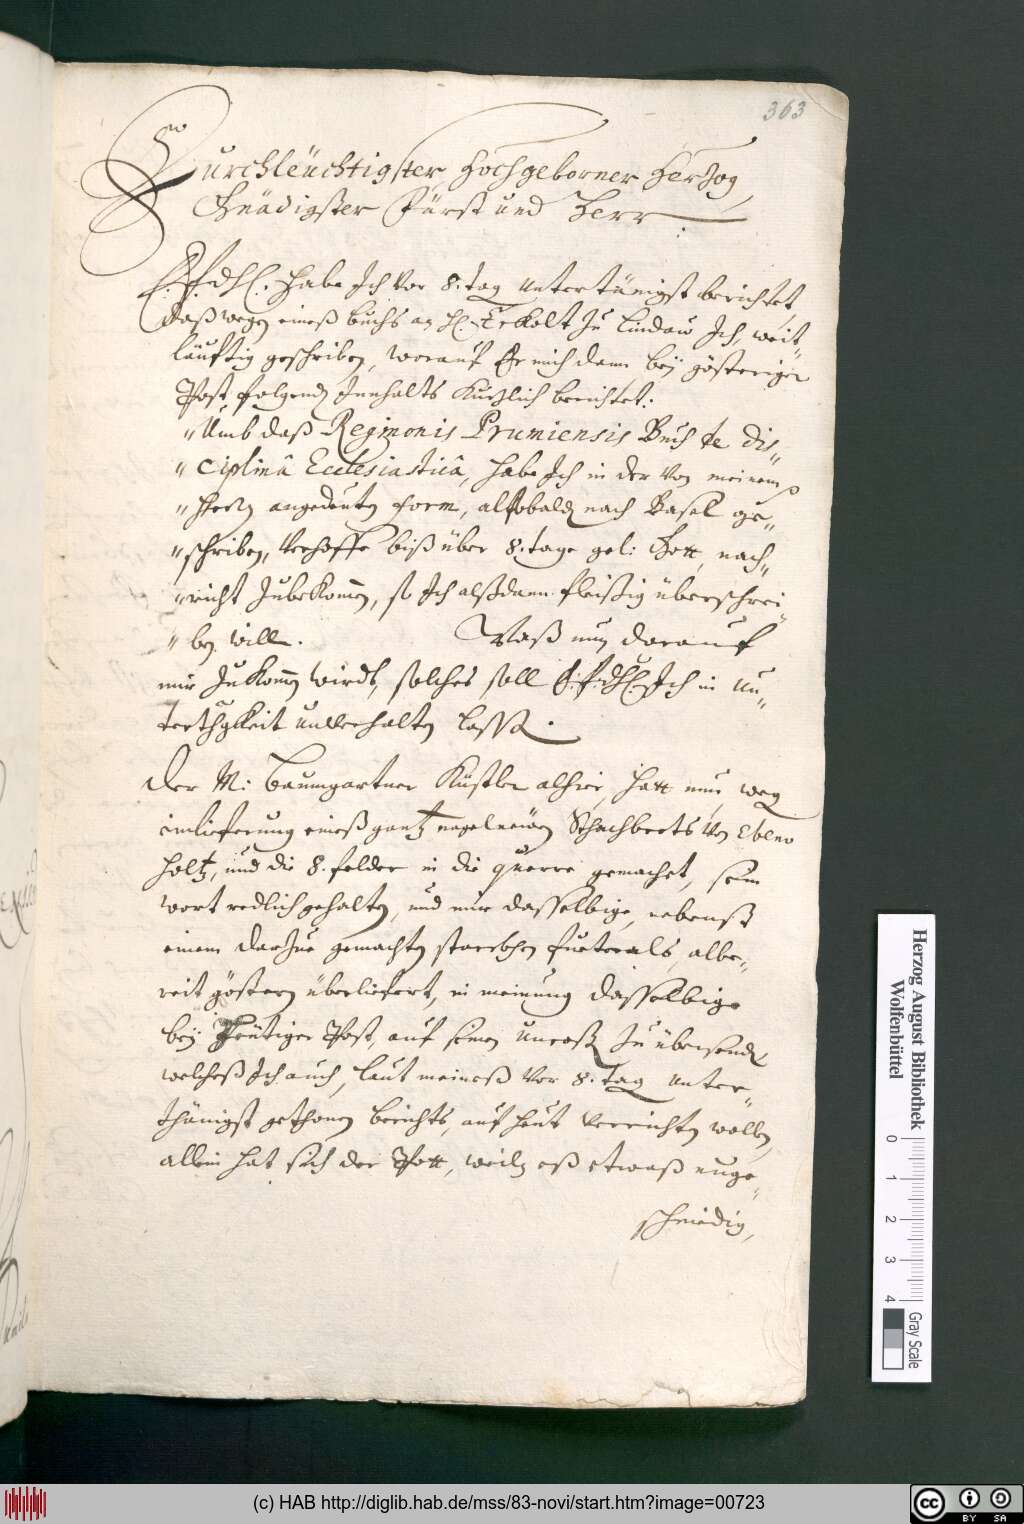 363
Durchleüchtigster, Hochgeborner Herzog,
Gnädigster Fürst und Herr
E. F. dhl. habe Ich vor 8. tag untertänigst berichtet,
daß wegen eineß buchs an H. Eckolt zu Lindaw Ich, weit„
läuftig geschriben, worauf Er mich dann beÿ gösteriger
Post folgendß Innhalts kurzlich berichtet:
„Umb daß Reginonis Prumiensis Buch de Dis„
„ciplinâ Ecclesiasticâ, habe Ich in der von meinem
„Herrn angedeuten form, alsobalden nach Basel ge„
„schriben, verhoffe biß über 8. tage gel: Gott, nach„
„richt zubekommen, so Ich alßdann fleißig überschrei„
„ben will. Waß nun darauf
mir zukommen wirdt, solches soll E. F. dhl. Ich in un„
terthgkeit unverhalten lassen.
Der M. Baumgartner Küstler alhie, hatt nun, wegen
einlieferung eineß gantz nagelneüen Schachbrets von Ebeno
holtz, und die 8. felder in die querre gemachet, sein
wort redlich gehalten, und mir dasselbige, nebenst
einem darzue gemachten starckhen fueterals, albe„
reit göstern überliefert, in meinung dasselbige
beÿ heütiger Post, auf seinen uncosten zu übersenden
welcheß Ich auch, laut meineß vor 8. tag unter„
thänigst gethonen berichts, auf heut verrichten wollen,
allein hat sich der Pott, weiln eß etwaß unge„
schmidig,
Herzog August Bibliothek
Wolfenbüttel
0 1 2 3 4
Gray Scale
(c) HAB http://diglib.hab.de/mss/83-novi/start.htm?image=00723
cc BY SA